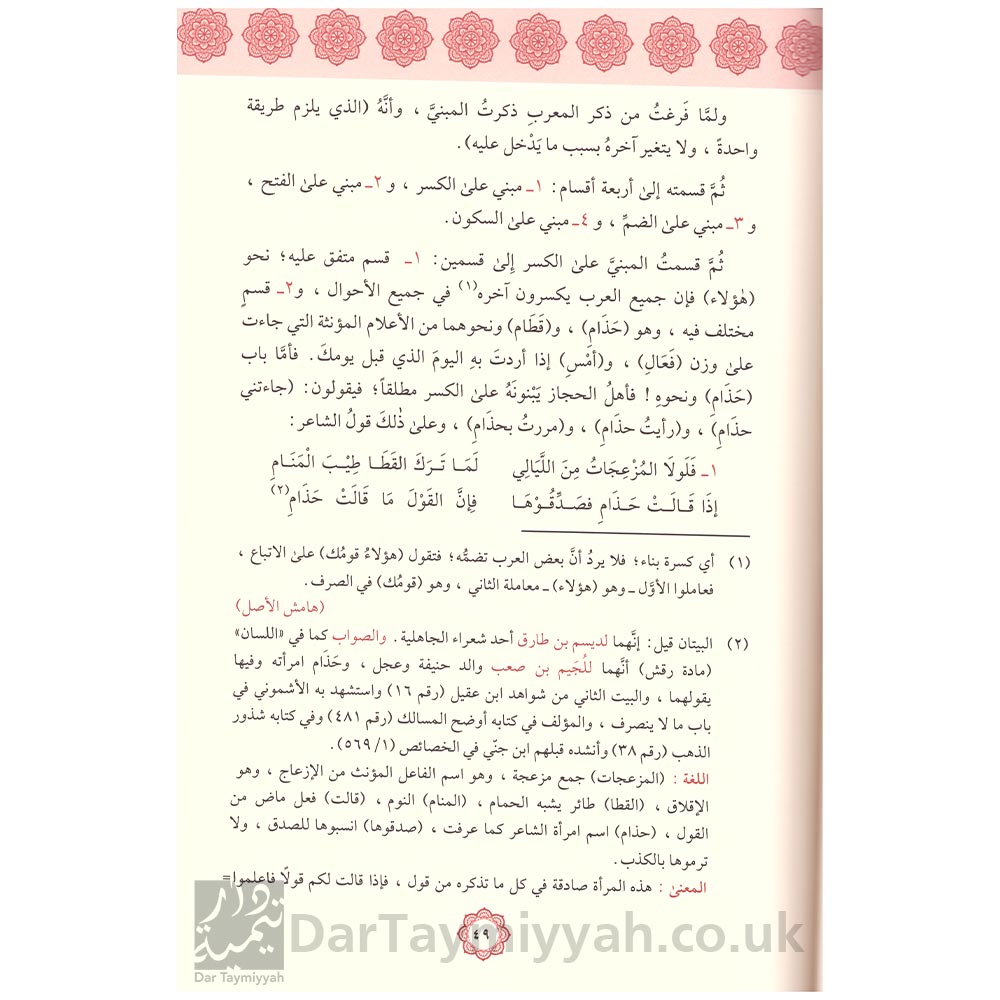 ولمَّا فَرغتُ من ذكر المعربِ ذكرتُ المبنيَّ ، وأنَّهُ (الذي يلزم طريقة
واحدةً ، ولا يتغير آخرهُ بسبب ما يَدْخل عليه).
ثُمَّ قسمته إلىٰ أربعة أقسام: ١ـ مبني علىٰ الكسر ، و ٢ـ مبني علىٰ الفتح ،
و ٣ـ مبني علىٰ الضمِّ ، و ٤ـ مبني علىٰ السكون.
ثُمَّ قسمتُ المبنيَّ علىٰ الكسر إِلىٰ قسمين: ١ـ قسم متفق عليه؛ نحو
(هٰؤلاء) فإن جميع العرب يكسرون آخره(١) في جميع الأحوال ، و٢ـ قسمٍ
مختلف فيه ، وهو (حَذَامِ) ، و(قَطَام) ونحوهما من الأعلام المؤنثة التي جاءت
علىٰ وزن (فَعَالِ) ، و(أمْسِ) إذا أردتَ بهِ اليومَ الذي قبل يومكَ. فأمَّا باب
(حَذَامِ) ونحوهِ! فأهلُ الحجاز يَبْنونَهُ علىٰ الكسر مطلقاً؛ فيقولون: (جاءتني
حذَامِ) ، و(رأيتُ حذَامِ) ، و(مررتُ بحذَامِ) ، وعلىٰ ذٰلكَ قولُ الشاعر:
١ـ فَلَولَا المُزْعِجَاتُ مِنَ اللَّيَالِي لَمَا تَرَكَ القَطَا طِيْبَ الْمَنَامِ
إذَا قَالَتْ حَذَامِ فصَدِّقُوْهَا فإِنَّ القَوْلَ مَا قَالَتْ حَذَامِ(٢)
(١) أي كسرة بناء؛ فلا يردُ أنَّ بعض العرب تضمُّه؛ فتقول (هؤلاءُ قومُك) علىٰ الاتباع ،
فعاملوا الأوَّل ـ وهو (هؤلاء) ـ معاملة الثاني ، وهو (قومُك) في الصرف.
(هامش الأصل)
(٢) البيتان قيل: إنَّهما لديسم بن طارق أحد شعراء الجاهلية. والصواب كما في «اللسان»
(مادة رقش) أنَّهما للُجَيم بن صعب والد حنيفة وعجل ، وحَذَام امرأته وفيها
يقولهما ، والبيت الثاني من شواهد ابن عقيل (رقم ١٦) واستشهد به الأشموني في
باب ما لا ينصرف ، والمؤلف في كتابه أوضح المسالك (رقم ٤٨١) وفي كتابه شذور
الذهب (رقم ٣٨) وأنشده قبلهم ابن جنّي في الخصائص (١/ ٥٦٩).
اللغة : (المزعجات) جمع مزعجة ، وهو اسم الفاعل المؤنث من الإزعاج ، وهو
الإقلاق ، (القطا) طائر يشبه الحمام ، (المنام) النوم ، (قالت) فعل ماض من
القول ، (حذام) اسم امرأة الشاعر كما عرفت ، (صدقوها) انسبوها للصدق ، ولا
ترموها بالكذب.
المعنىٰ : هذه المرأة صادقة في كل ما تذكره من قول ، فإذا قالت لكم قولًا فاعلموا=
٤٩
دار تيمية
Dar Taymiyyah
DarTaymiyyah.co.uk